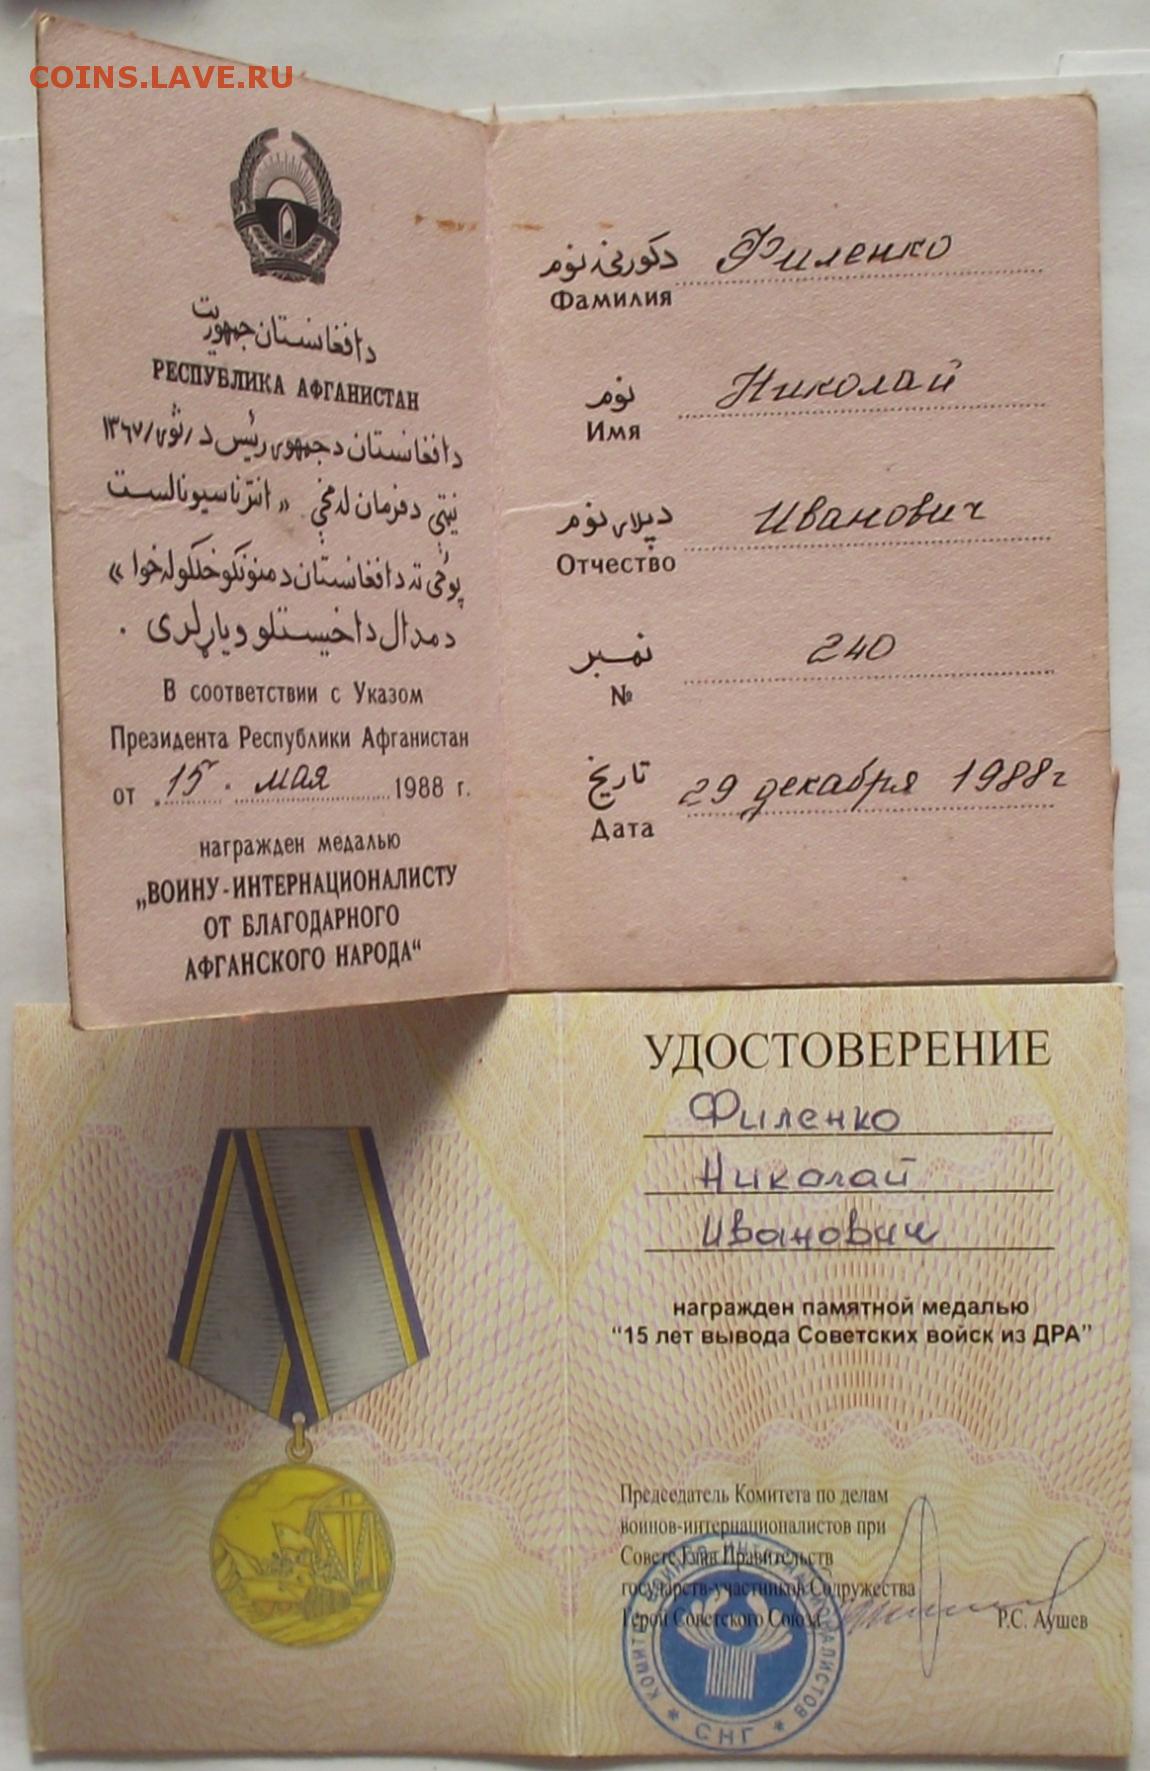 COINS.LAVE.RU
دافغانستان جمهوریت
РЕСПУБЛИКА АФГАНИСТАН
دافغانستان دجمهوری رئیس د / ثور / ۱۳۶۷
نیټې دفرمان له مخې « انترناسیونالست
پوځي ته دافغانستان دمنونکو خلکو له خوا »
دمدال داخیستلو ویاړ لری .
В соответствии с Указом
Президента Республики Афганистан
от „15“ мая 1988 г.
награжден медалью
„ВОИНУ-ИНТЕРНАЦИОНАЛИСТУ
ОТ БЛАГОДАРНОГО
АФГАНСКОГО НАРОДА“
دکورنۍ نوم Филенко
Фамилия
نوم Николай
Имя
دپلار نوم Иванович
Отчество
نمبر 240
№
تاریخ 29 декабря 1988 г
Дата
УДОСТОВЕРЕНИЕ
Филенко
Николай
Иванович
награжден памятной медалью
"15 лет вывода Советских войск из ДРА"
Председатель Комитета по делам
воинов-интернационалистов при
Совете Глав Правительств
государств-участников Содружества
Герой Советского Союза Р.С. Аушев
КОМИТЕТ ВОИНОВ-ИНТЕРНАЦИОНАЛИСТОВ
* СНГ *